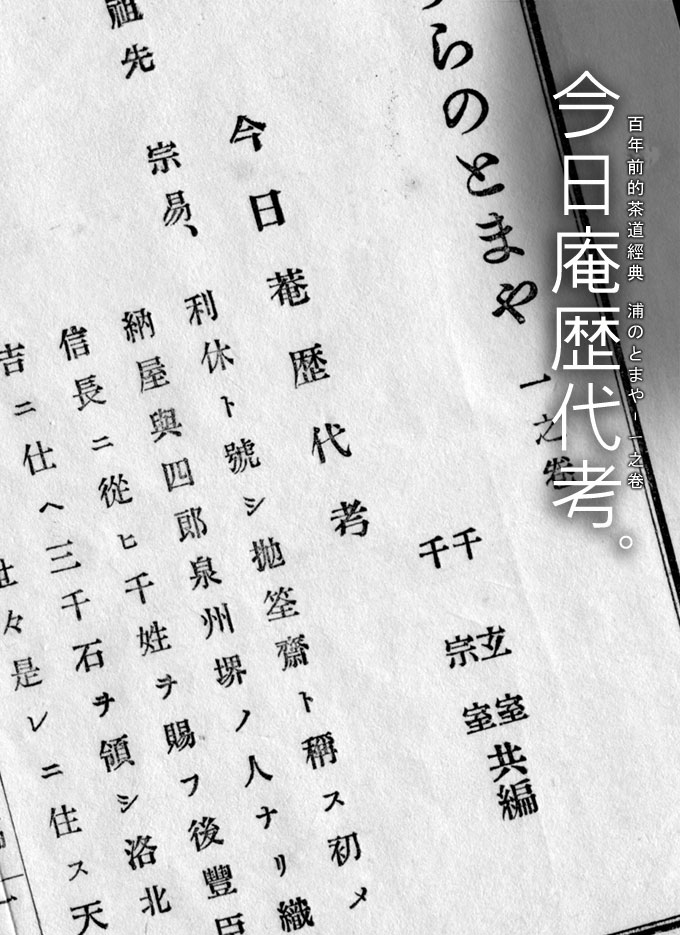 百年前的茶道經典 浦のとまや－一之卷
今日庵歴代考。
らのとまや 一之卷
千玄室
千宗室
共編
今日菴歴代考
祖先 宗易、利休ト號シ抛筌齋ト稱ス初メ
納屋與四郎泉州堺ノ人ナリ織
信長ニ從ヒ千姓ヲ賜フ後豐臣
吉ニ仕ヘ三千石ヲ領シ洛北
々是レニ住ス天